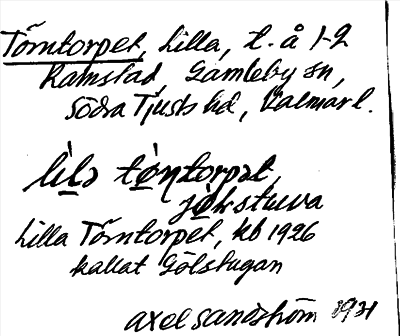 Törntorpet, Lilla, t. å 1-2
Ramstad Gamleby sn,
Södra Tjusts hd, Kalmar l.
lìlə tön̩torpət,
jö̀kstuva
Lilla Törntorpet, kb 1926
kallat Gölstugan
Axel Sandström 1931